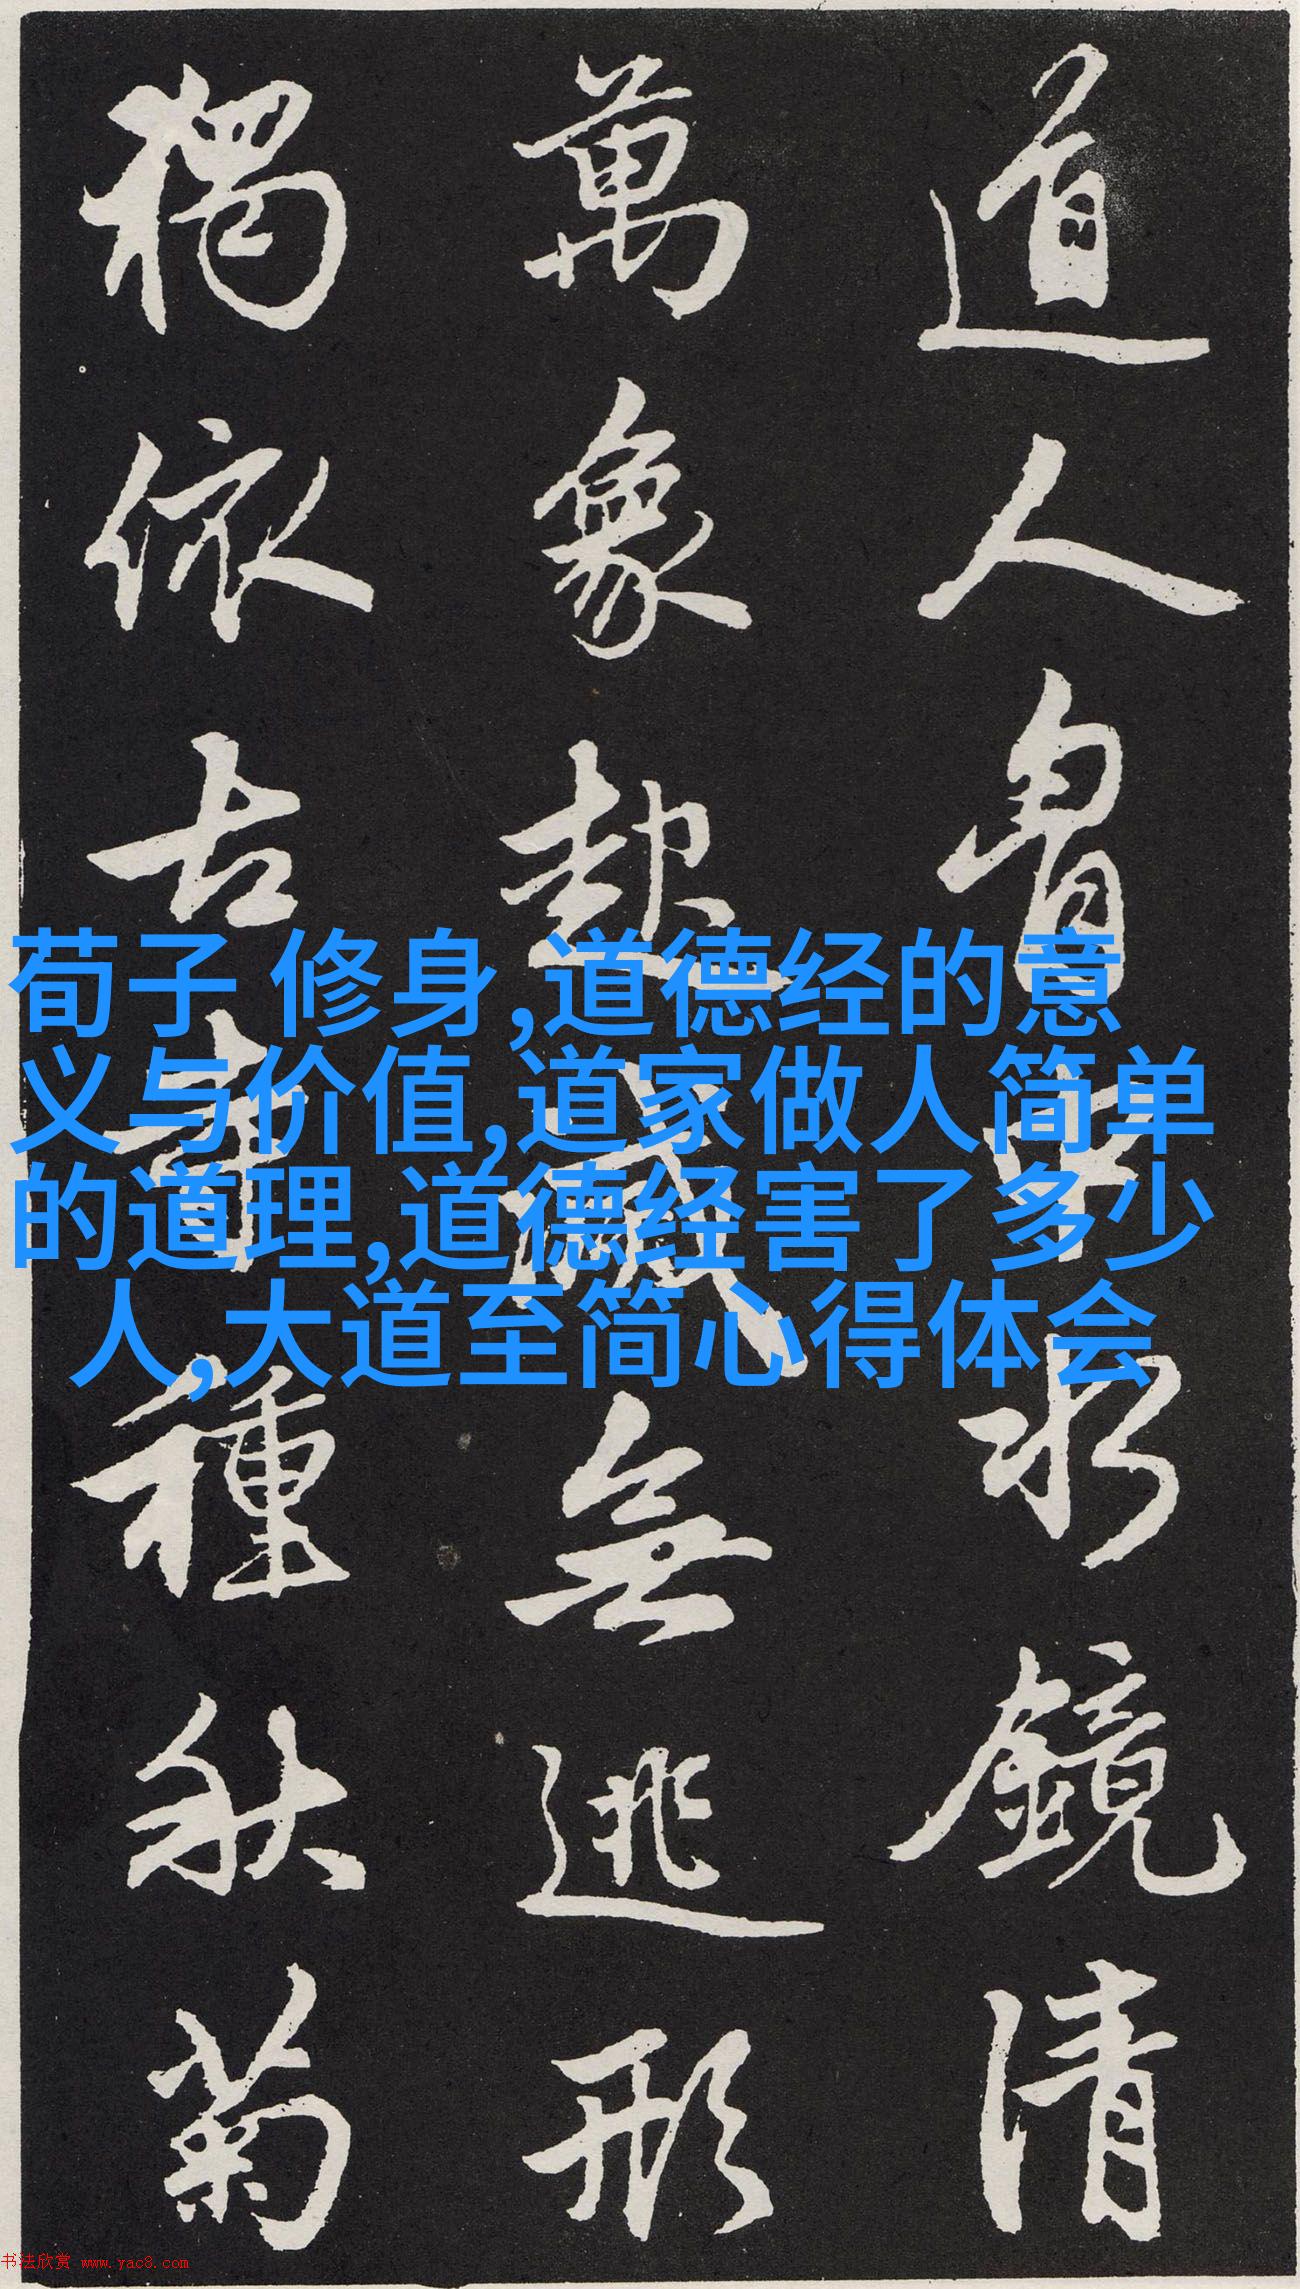 道人胷中水鏡清
萬象起滅無逃形
獨依古寺種秋菊
荀子 修身,道德经的意
义与价值,道家做人简单
的道理,道德经害了多少
人,大道至简心得体会
书法欣赏 www.yac8.com